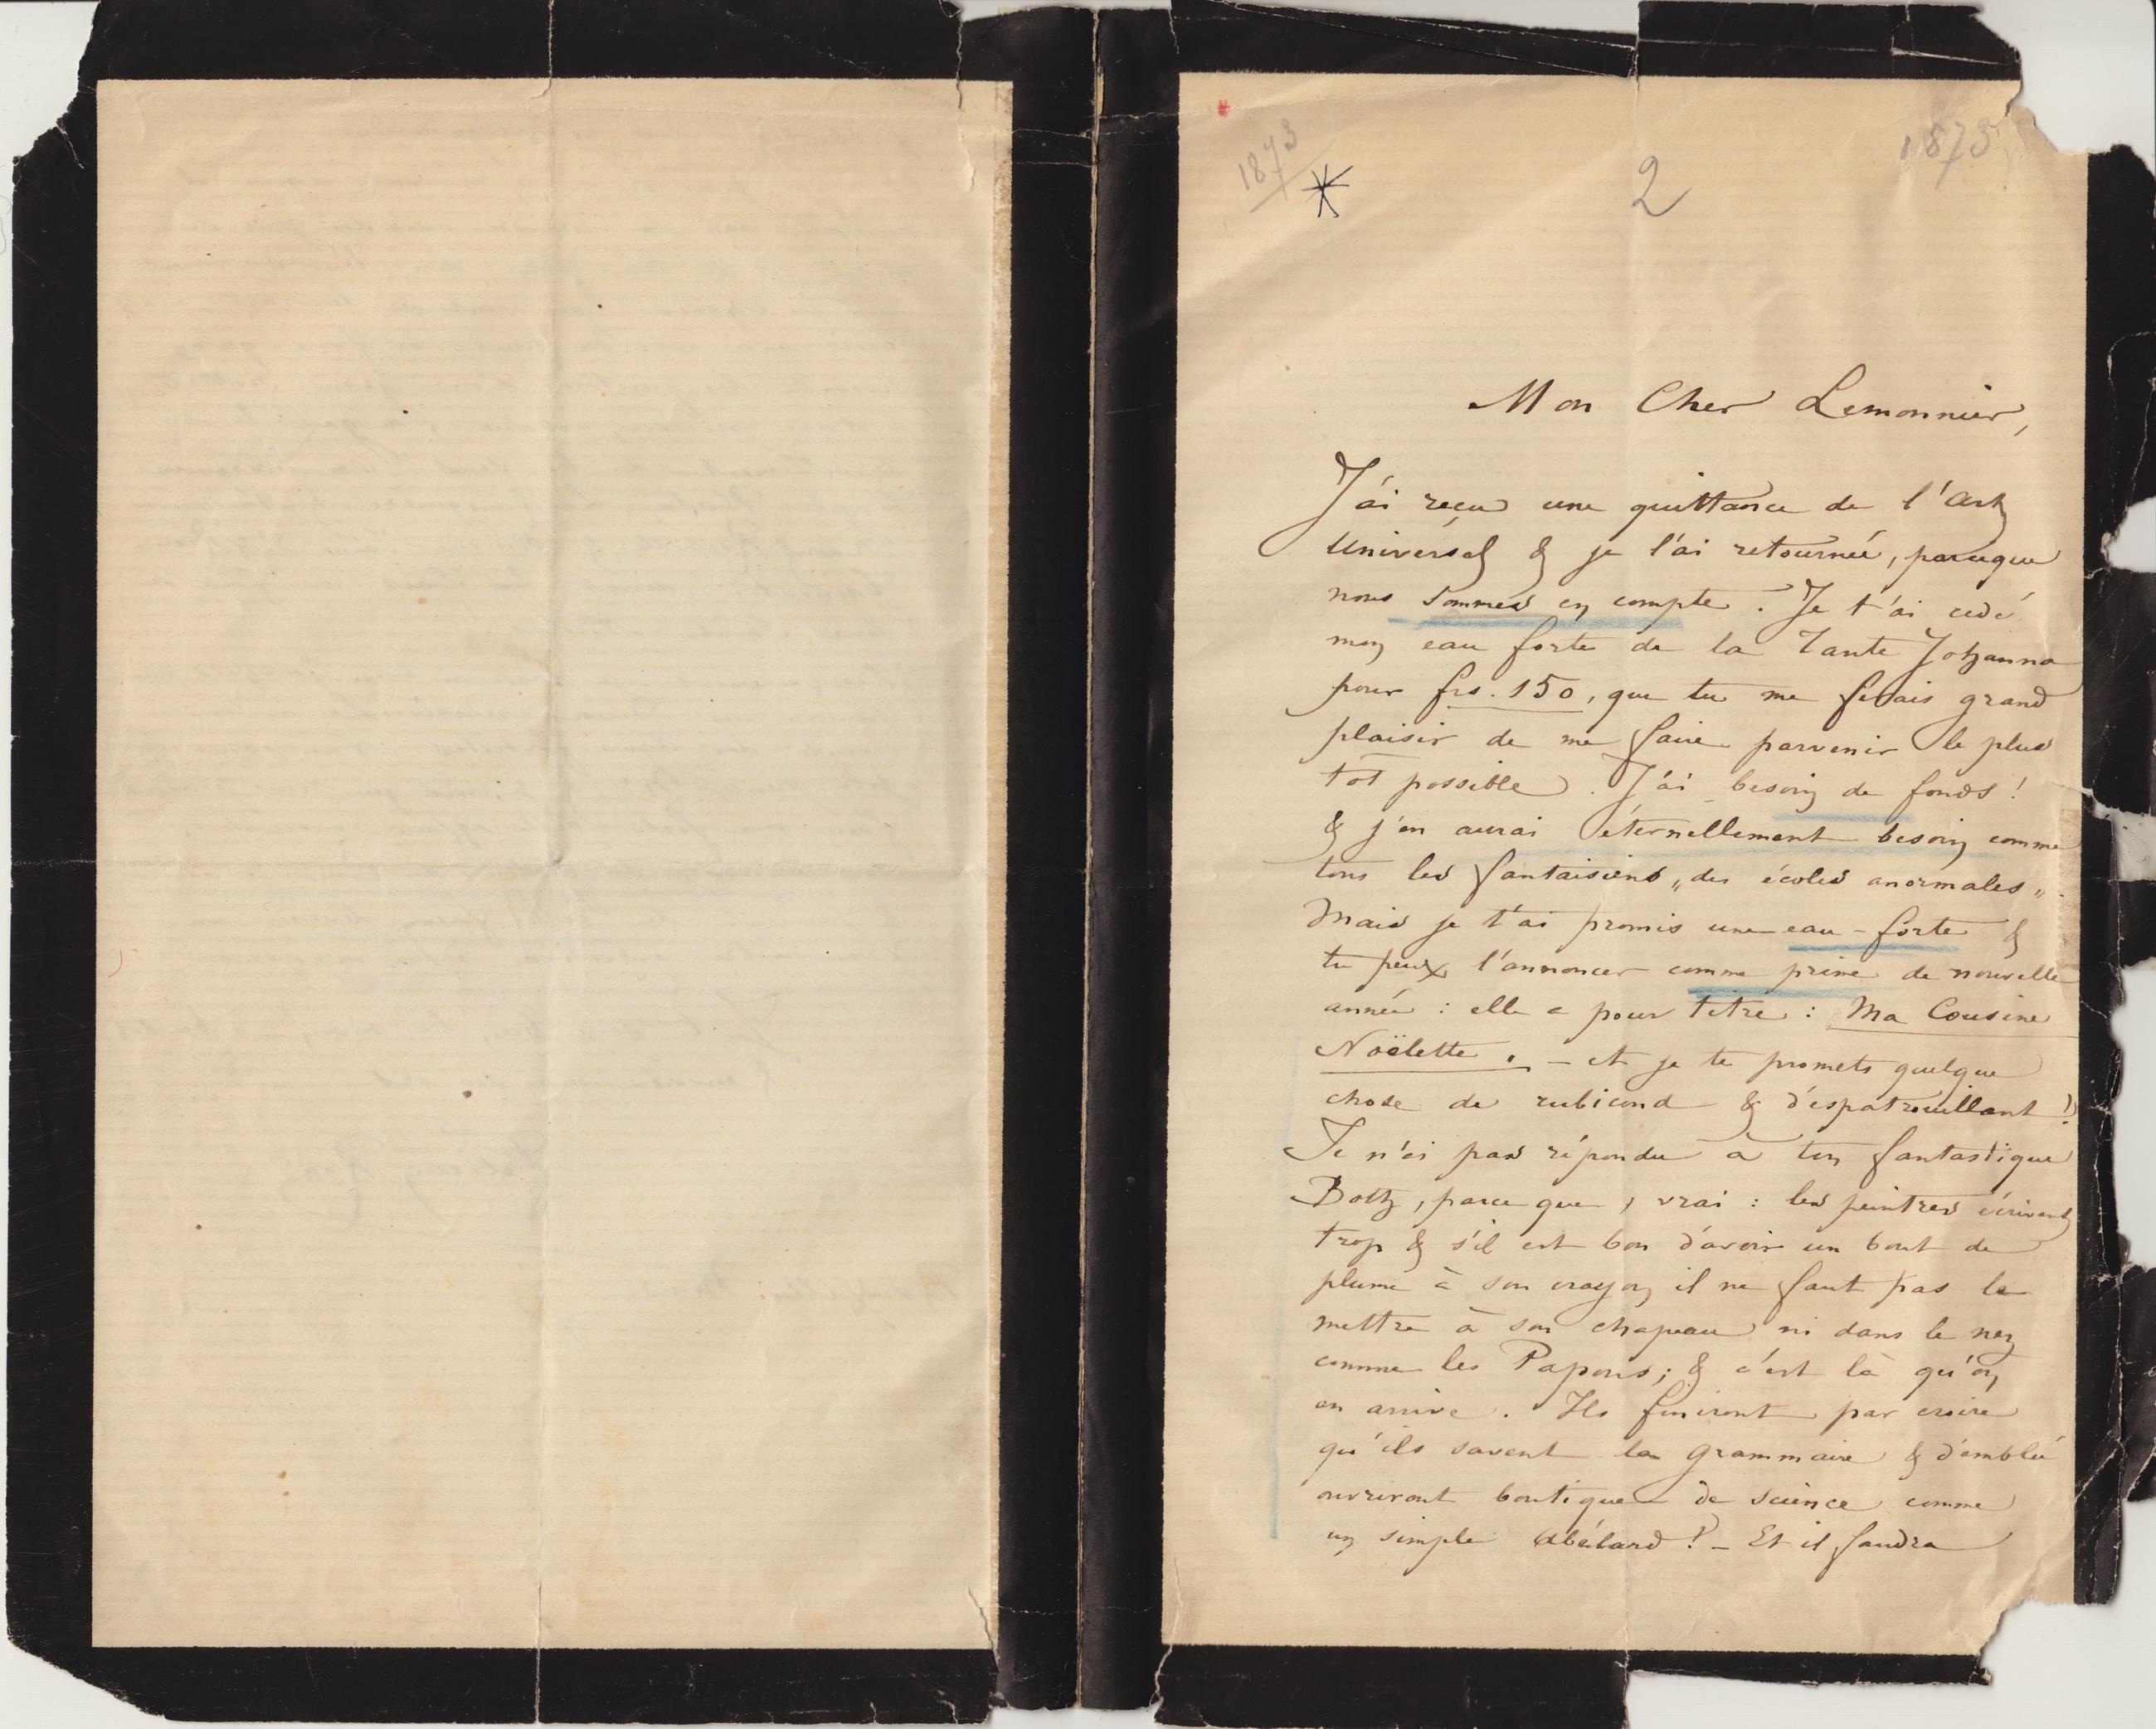 1873
*
2
1875
Mon Cher Lemonnier,
J'ai reçu une quittance de l'Art
Universel & je l'ai retournée, parceque
nous sommes en compte. Je t'ai cédé
mon eau forte de la Tante Johanna
pour frs. 150, que tu me ferais grand
plaisir de me faire parvenir le plus
tôt possible. J'ai besoin de fonds!
& j'en aurai éternellement besoin comme
tous les fantaisiens „des écoles anormales„.
Mais je t'ai promis une eau-forte &
tu peux l'annoncer comme prime de nouvelle
année : elle a pour titre : Ma Cousine
Noëlette. – et je te promets quelque
chose de rubicond & d'espatrouillant!
Je n'ai pas répondu à ton fantastique
Both, parce que, vrai : les peintres écrivent
trop & s'il est bon d'avoir un bout de
plume à son crayon il ne faut pas le
mettre à son chapeau ni dans le nez
comme les Papous; & c'est là qu'on
en arrive. Ils finiront par croire
qu'ils savent la grammaire & d'emblée
ouvriront boutique de science comme
un simple Abélard! – Et il faudra